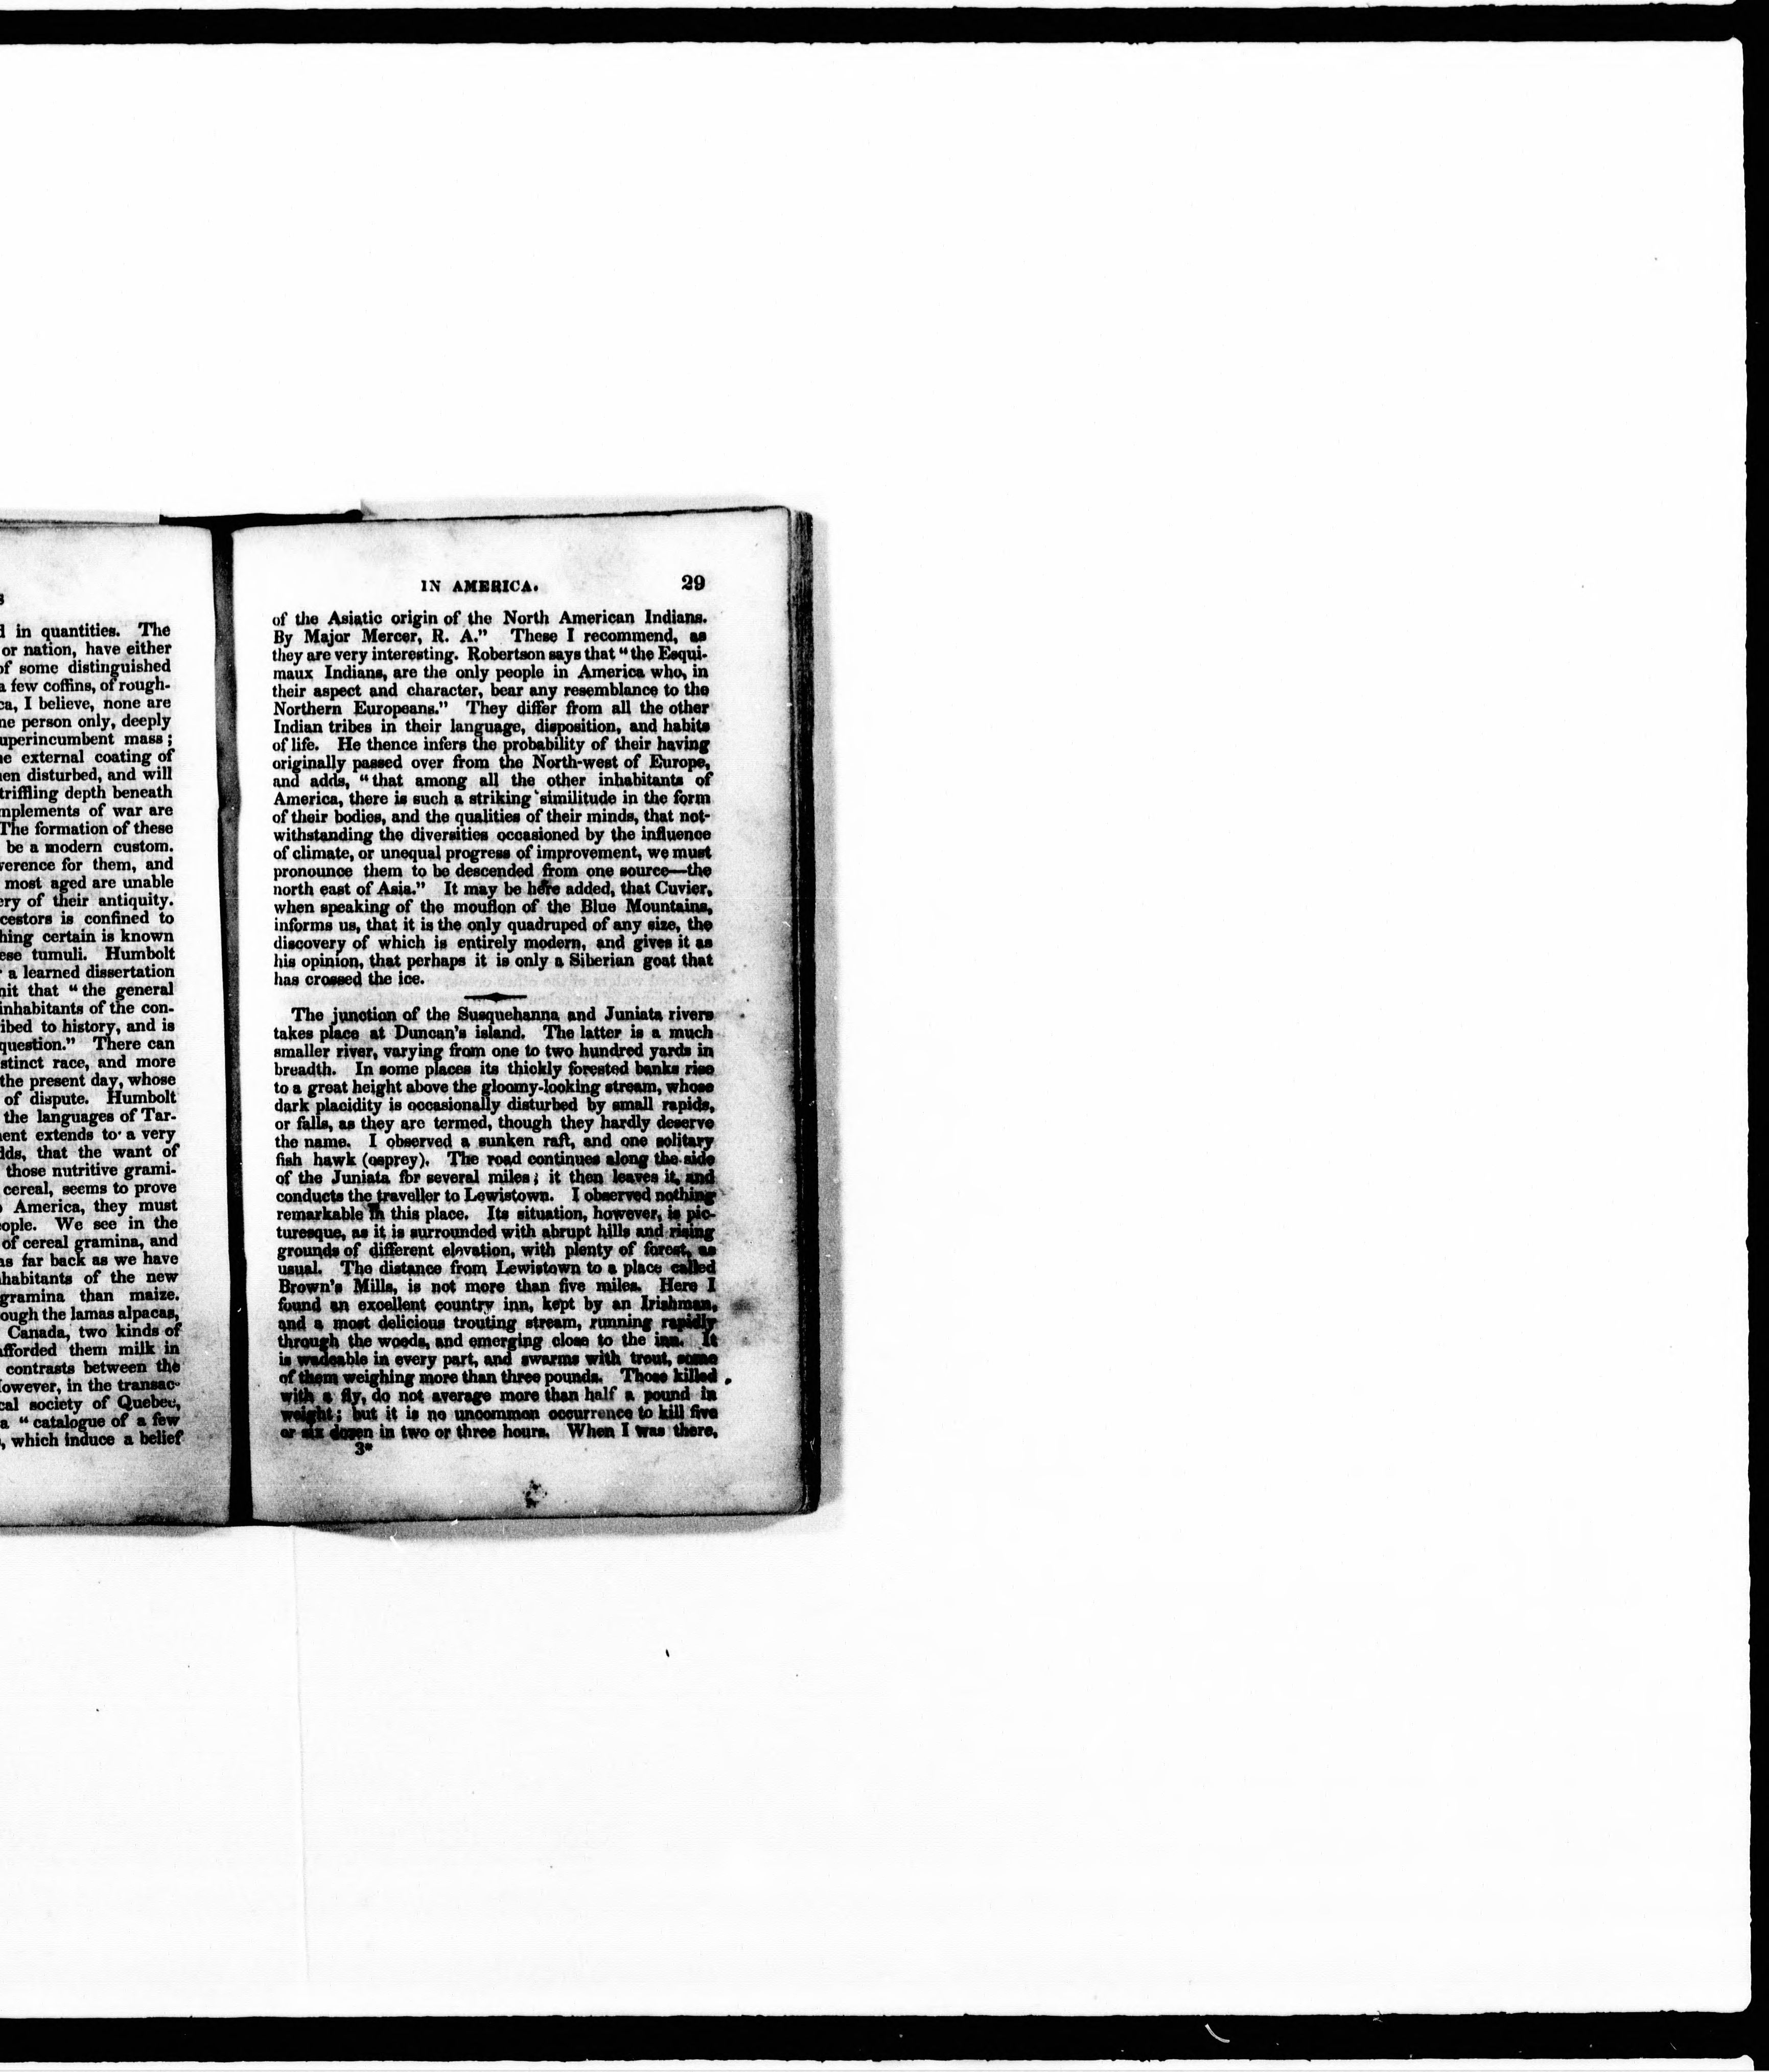 s
d in quantities. The
or nation, have either
of some distinguished
a few coffins, of rough-
ca, I believe, none are
ne person only, deeply
uperincumbent mass;
ne external coating of
en disturbed, and will
triffling depth beneath
mplements of war are
The formation of these
be a modern custom.
verence for them, and
most aged are unable
ery of their antiquity.
cestors is confined to
hing certain is known
ese tumuli. Humbolt
a learned dissertation
nit that "the general
inhabitants of the con-
ibed to history, and is
question." There can
stinct race, and more
the present day, whose
of dispute. Humbolt
the languages of Tar-
ent extends to a very
dds, that the want of
those nutritive grami-
cereal, seems to prove
America, they must
eople. We see in the
of cereal gramina, and
as far back as we have
habitants of the new
gramina than maize.
ough the lamas alpacas,
Canada, two kinds of
afforded them milk in
contrasts between the
However, in the transac-
cal society of Quebec,
a "catalogue of a few
, which induce a belief
IN AMERICA. 29
of the Asiatic origin of the North American Indians.
By Major Mercer, R. A." These I recommend, as
they are very interesting. Robertson says that "the Esqui-
maux Indians, are the only people in America who, in
their aspect and character, bear any resemblance to the
Northern Europeans." They differ from all the other
Indian tribes in their language, disposition, and habits
of life. He thence infers the probability of their having
originally passed over from the North-west of Europe,
and adds, "that among all the other inhabitants of
America, there is such a striking similitude in the form
of their bodies, and the qualities of their minds, that not-
withstanding the diversities occasioned by the influence
of climate, or unequal progress of improvement, we must
pronounce them to be descended from one source—the
north east of Asia." It may be here added, that Cuvier,
when speaking of the mouflon of the Blue Mountains,
informs us, that it is the only quadruped of any size, the
discovery of which is entirely modern, and gives it as
his opinion, that perhaps it is only a Siberian goat that
has crossed the ice.
The junction of the Susquehanna and Juniata rivers
takes place at Duncan's island. The latter is a much
smaller river, varying from one to two hundred yards in
breadth. In some places its thickly forested banks rise
to a great height above the gloomy-looking stream, whose
dark placidity is occasionally disturbed by small rapids,
or falls, as they are termed, though they hardly deserve
the name. I observed a sunken raft, and one solitary
fish hawk (osprey). The road continues along the side
of the Juniata for several miles; it then leaves it, and
conducts the traveller to Lewistown. I observed nothing
remarkable in this place. Its situation, however, is pic-
turesque, as it is surrounded with abrupt hills and rising
grounds of different elevation, with plenty of forest, as
usual. The distance from Lewistown to a place called
Brown's Mills, is not more than five miles. Here I
found an excellent country inn, kept by an Irishman,
and a most delicious trouting stream, running rapidly
through the woods, and emerging close to the inn. It
is wadeable in every part, and swarms with trout, some
of them weighing more than three pounds. Those killed
with a fly, do not average more than half a pound in
weight; but it is no uncommon occurrence to kill five
or six dozen in two or three hours. When I was there,
3*